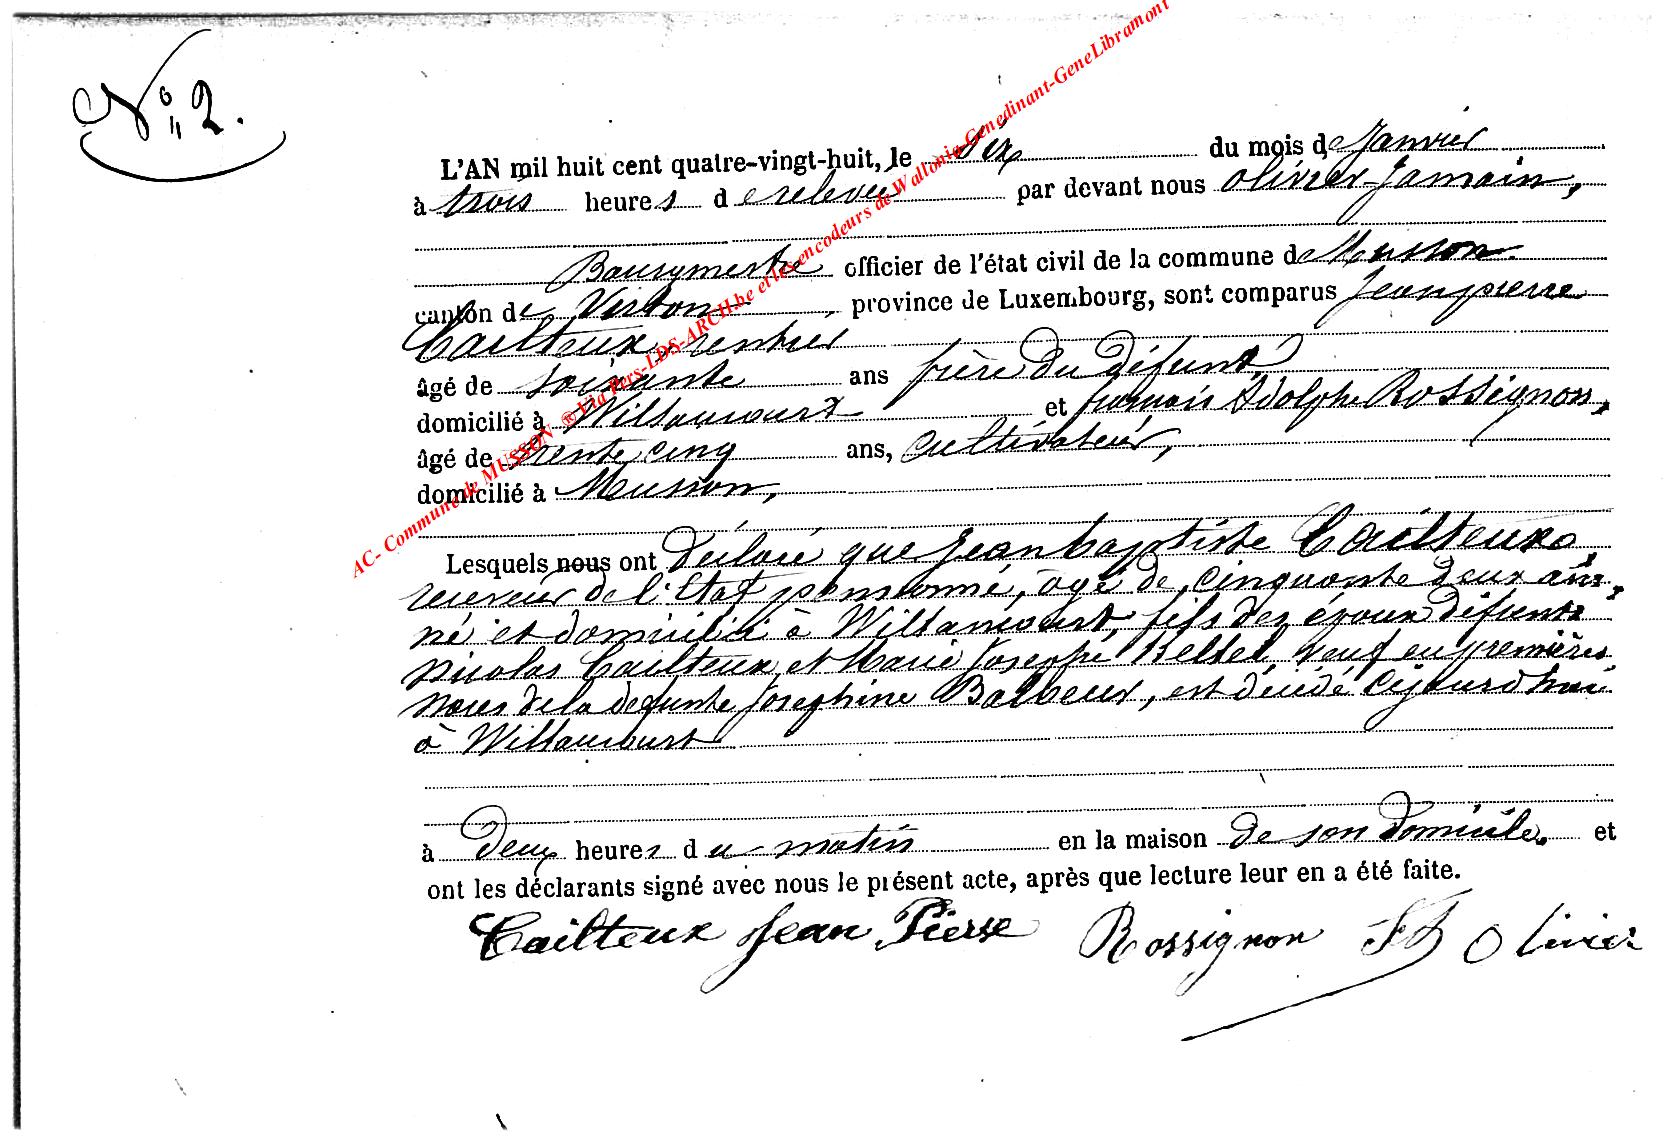 N° 2.
L'AN mil huit cent quatre-vingt-huit, le dix du mois de Janvier
à trois heures de relevée par devant nous Olivier Jamain,
Bourgmestre officier de l'état civil de la commune de Musson.
canton de Virton, province de Luxembourg, sont comparus Jean pierre
Cailteux, rentier
âgé de soixante ans frère du défunt
domicilié à Willancourt et françois Adolphe Rossignon,
âgé de trente cinq ans, cultivateur,
domicilié à Musson,
Lesquels nous ont déclaré que Jean baptiste Cailteux,
receveur de l'Etat pensionné, âgé de cinquante deux ans,
né et domicilié à Willancourt, fils des époux défunts
Nicolas Cailteux et Marie Josephe veuf en premières
noces de la defunte Josephine est décédé cejourd'hui
à Willancourt
à deux heures du matin en la maison de son domicile. et
ont les déclarants signé avec nous le présent acte, après que lecture leur en a été faite.
Cailteux Jean Pierre Rossignon Olivier
AC- Commune de MUSSON ® Via Pers-LDS-ARCH.be et les encodeurs de Wallonia-Genedinant-GeneLibramont